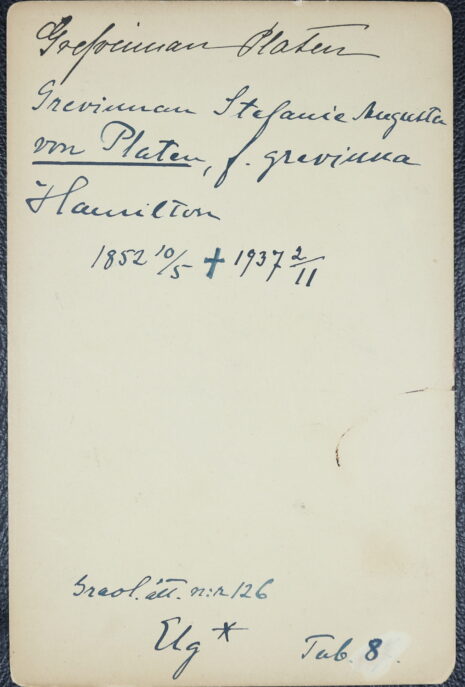 Grefvinnan Platen
Grevinnan Stefanie Augusta
von Platen, f. grevinna
Hamilton
1852 10/5 + 1937 2/11
Grevl. ätt. n:r 126
Elg *
Tab. 8